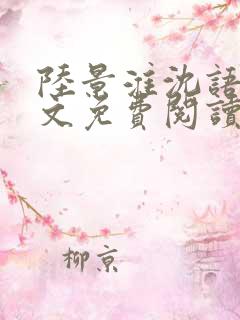 陸景淮沈語
文免費閱讀
柳京